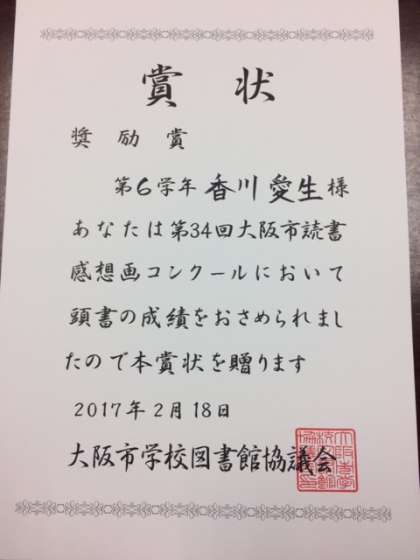 賞状
奨励賞
第6学年 香川愛生様
あなたは第34回大阪市読書
感想画コンクールにおいて
頭書の成績をおさめられまし
たので本賞状を贈ります
2017年2月18日
大阪市学校図書館協議会